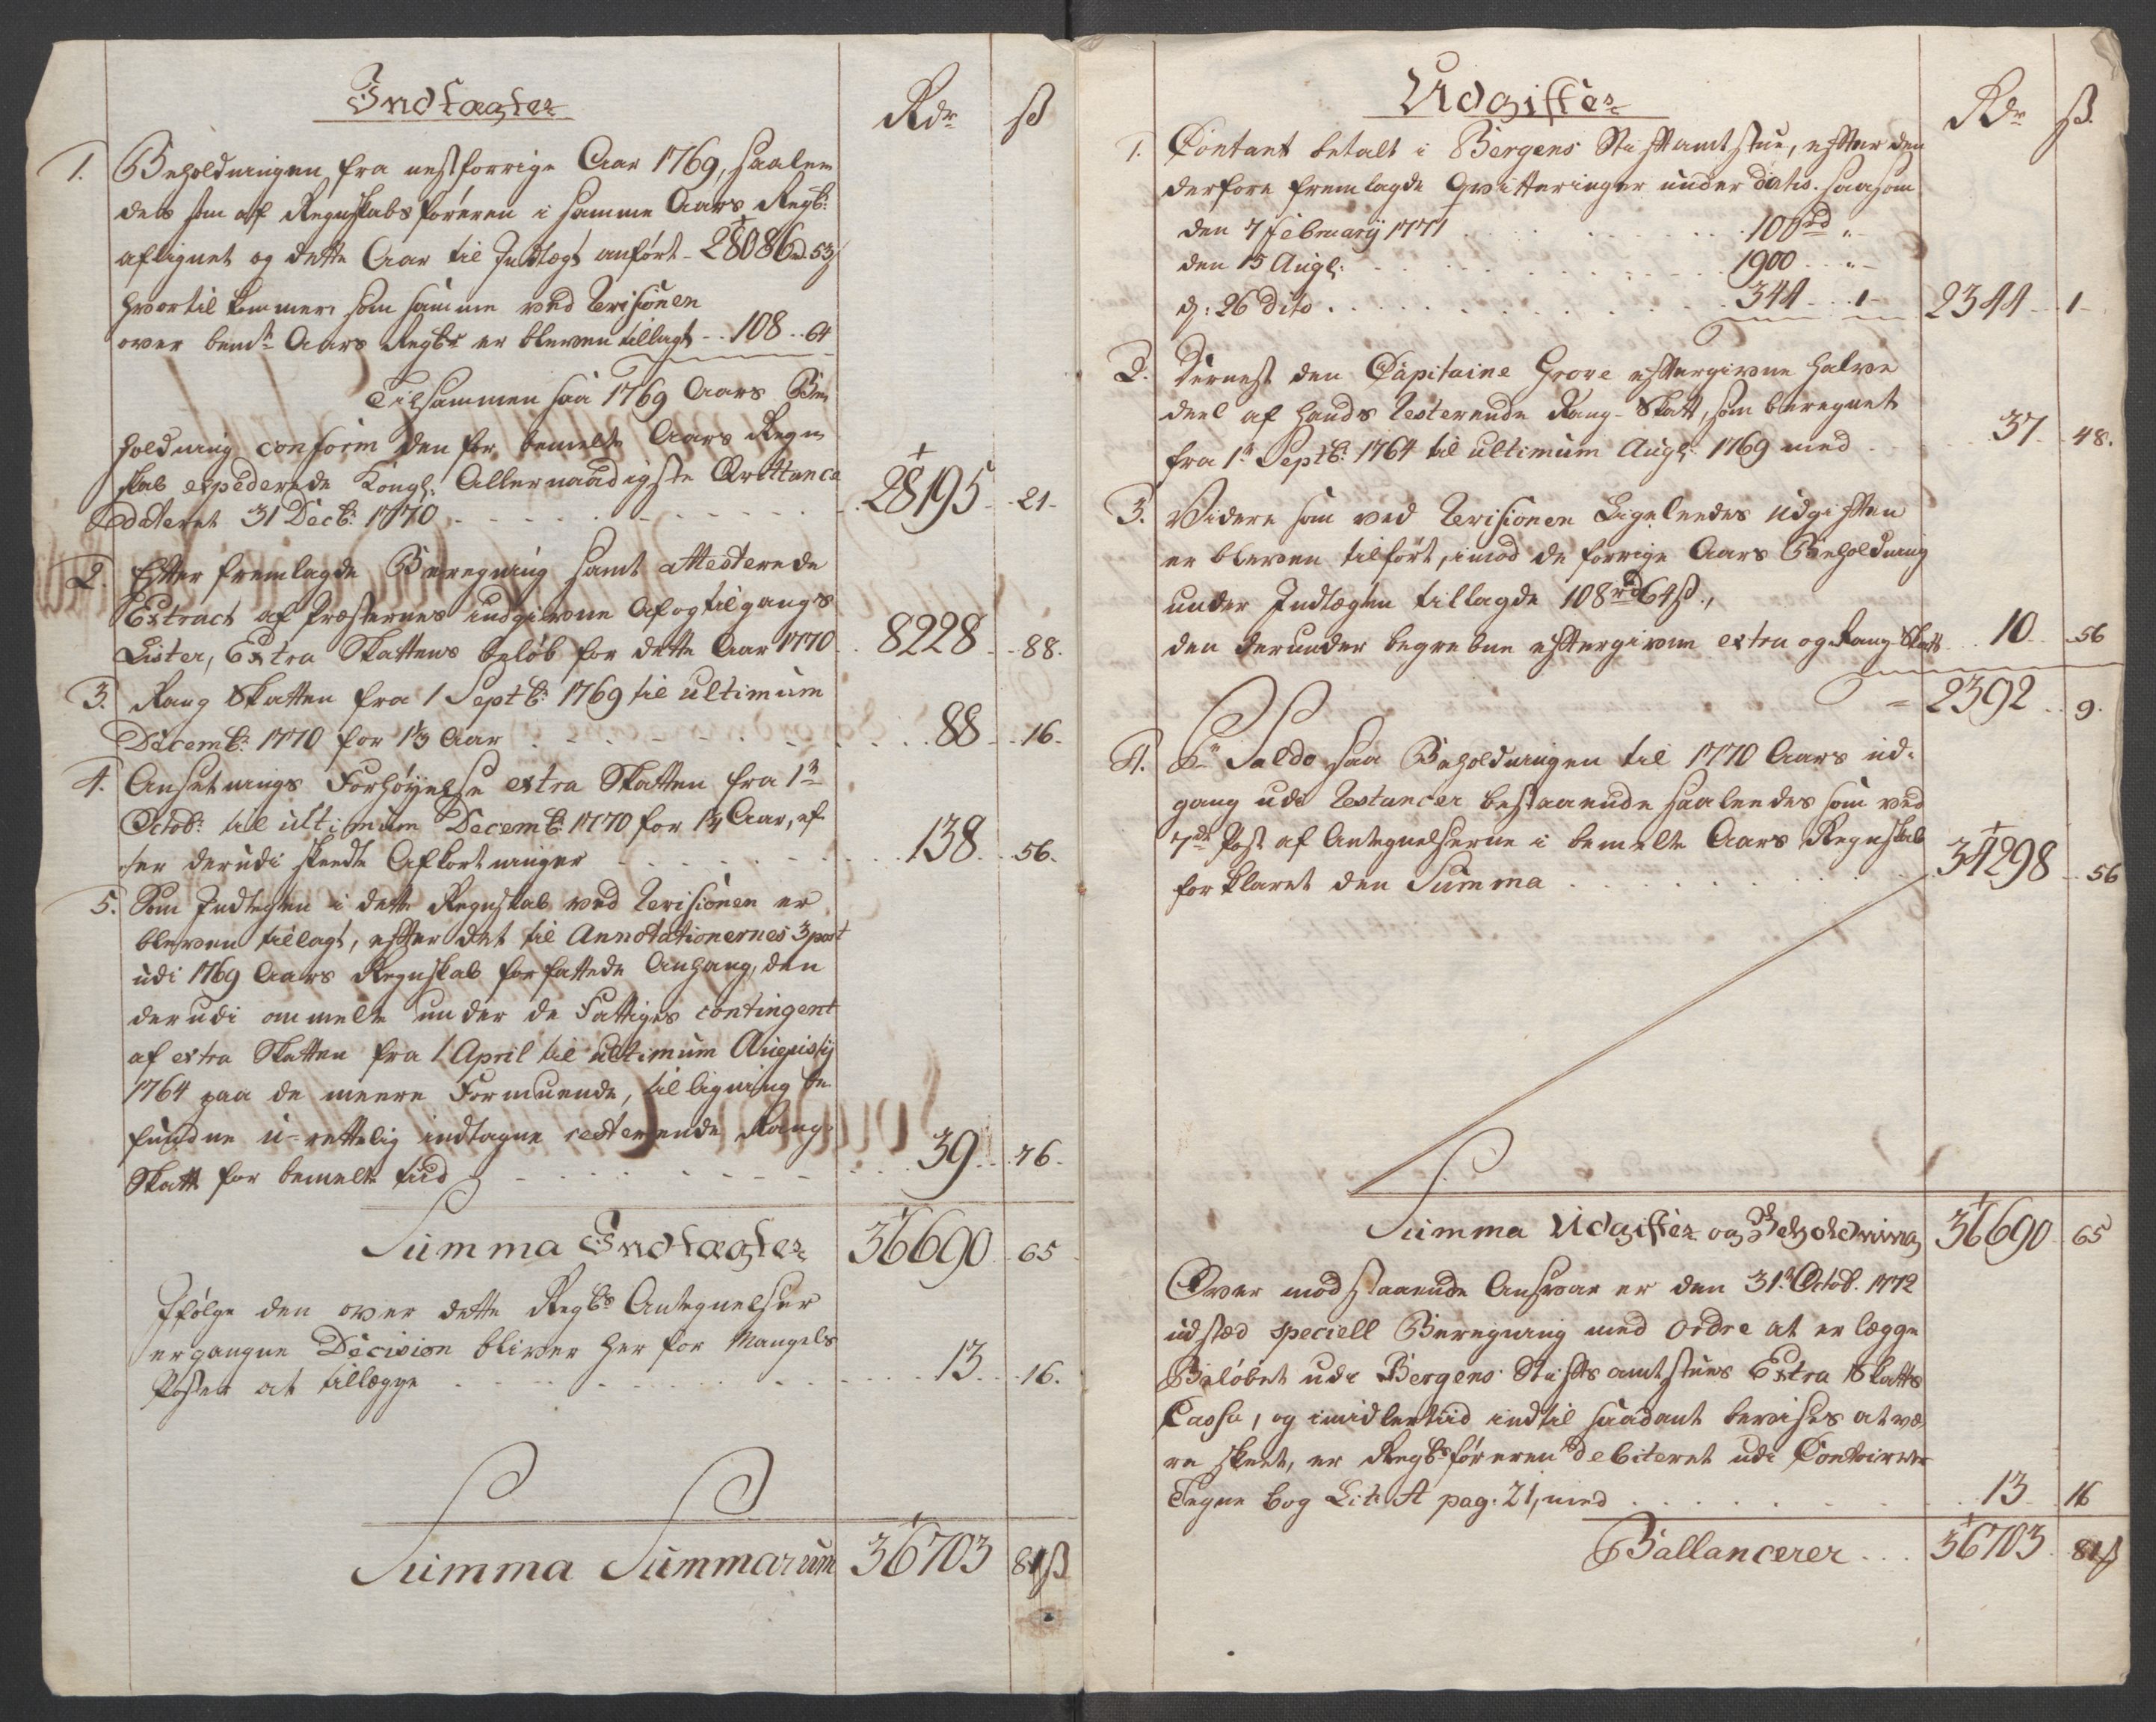 Indtægter
Rdr ß
1. Beholdningen fra nestforrige Aar 1769, saalen
des som af Regnskabsføreren i samme Aars Regsk:
aflignet og dette Aar til Indtægt anført - 28086rd 53ß
hvortil kommer som samme ved Revisionen
over bemte Aars Regsk er bleven tillagt - 108 - 64
Tilsammen saa 1769 Aars Be-
holdning conform den for bemelte Aars Regn
skab expederede Kongl: Allernaadigste Qvittance
dateret 31 Decbr: 1770 - 28195 - 21 -
2. Efter fremlagde Beregning samt attesterede
Extract af Præsternes indgivne Af og tilgangs
Lister, Extra Skattens beløb for dette Aar 1770 - 8228 - 88.
3. Rang Skatten fra 1 Septbr: 1769 til ultimum
Decembr: 1770 for 1⅓ Aar - 88 - 16 -
4. Ansetnings Forhøyelse extra Skatten fra 1te
Octobr: til ultimum Decembr: 1770 for 1¼ Aar, ef-
ter derudi skeedte Afkortninger - 138 - 56.
5. Som Indtægten i dette Regnskab ved Revisionen er
bleven tillagt, efter det til Annotationernes 3 post
udi 1769 Aars Regnskab forfattede Anhang, den
derudi ommelte under de Fattiges contingent
af extra Skatten fra 1 April til ultimum Augustij
1764 paa de meere Formuende, til ligning be-
fundne u-rettelig indtagne resterende Rang-
Skatt for bemelte tiid - 39 - 76 -
Summa Indtægter 36690 - 65
Ifølge den over dette Regsks Antegnelser
ergangne Decision bliver her for Mangels
Poster at tillægge - 13 - 16.
Summa Summarum 36703 81ß
Udgifter
Rdr ß.
1. Contant betalt i Bergens Stiftamtstue, efter den
derfore fremlagde Qvitteringer under datis. saasom
den 7 February 1771 - 100rd "
den 15 Aug: - 1900 - "
d: 26 dito - 344 - 1 - 2344 - 1 -
2. Dernest den Capitaine Grove eftergivne halve
deel af hands resterende Rang-Skatt, som beregnet
fra 1te Septbr: 1764 til ultimum Aug: 1769 med - 37 - 48.
3. Videre som ved Revisionen Ligeleedes Udgiften
er bleven tilført, imod de forrige Aars Beholdning
under Indtægten tillagde 108rd 64ß,
den derunder begrebne eftergivne extra og Rang Skatt - 10 - 56
= 2392 - 9.
4. Pr Saldo saa Beholdningen til 1770 Aars ud-
gang udi Restancer bestaaende saaleedes som ved
7de Post af Antegnelserne i bemelte Aars Regnskab
forklaret den Summa - 34298 - 56
Summa Udgifter og Beholdning 36690 65
Over modstaaende Ansvar er den 31te Octob. 1772
udsted speciell Beregning med Ordre at erlægge
Beløbet udi Bergens Stifts amtstues Extra Skatts
Cassa, og imidlertiid indtil saadant bevises at væ
re skeet, er Regskføreren debiteret udi Contoirets
Tegne bog Litr: A pag: 21, med - 13 16
Ballancerer - 36703 - 81ß